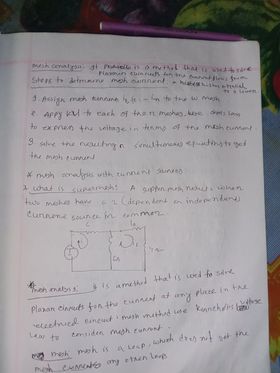 mesh analysis: It provides is a method that is used to solve
Planar circuits for the current flows from
Steps to determine mesh current a higher potential
to a lower
1. Assign mesh currents to the n mesh
2. Apply KVL to each of the n meshes. Use ohm's law
to express the voltage in terms of the mesh current
3. solve the resulting n simultaneous equation to get
the mesh current
* mesh analysis with current sources
* what is supermesh? A supper mesh results when
two meshes have a (dependent or independent)
current source in common
mesh analysis: It is a method that is used to solve
Planar circuits for the current at any place in the
electrical circuit. mesh method use voltage
law to consider mesh current.
mesh mesh is a loop, which does not
mesh any other loop